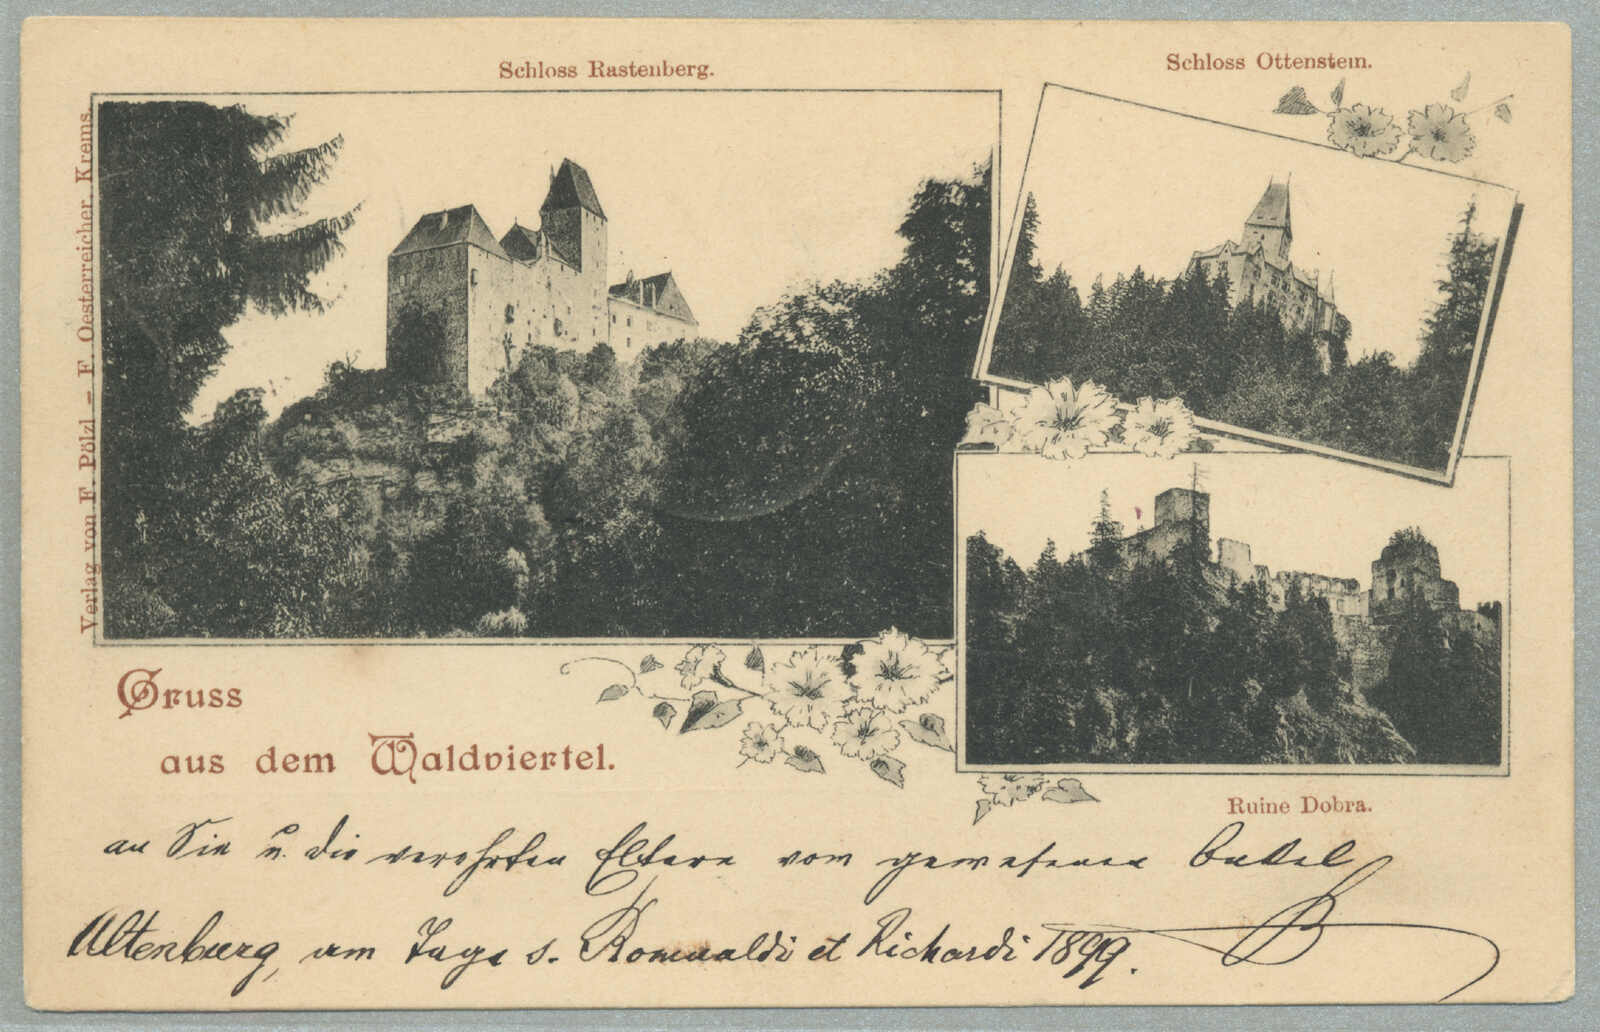 Schloss Rastenberg.
Schloss Ottenstein.
Verlag von F. Pölzl – F. Oesterreicher, Krems.
Gruss
aus dem Waldviertel.
Ruine Dobra.
an Sie u. die verehrten Eltern vom gewesenen Onkel
Altenburg, am Tage s. Romualdi et Richardi 1899.
B